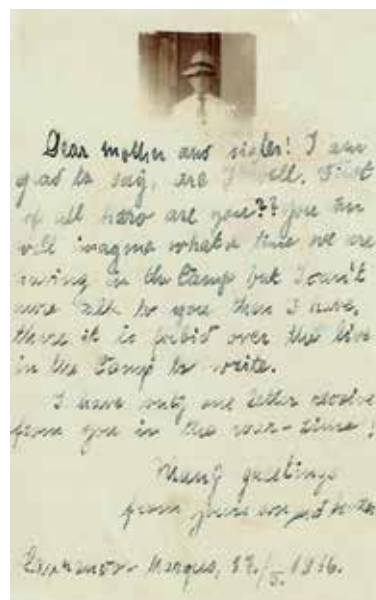 Dear mother and sister! I am
glad to say, are I well. First
of all how are you?? you can
will imagine what a time we are
having in the Camp but I can't
more to you then I have,
there it is forbid over the live
in the Camp to write.
I have only one letter receive
from you in the war-time!
Many greetings
from your son and
Marques, 5. 1916.